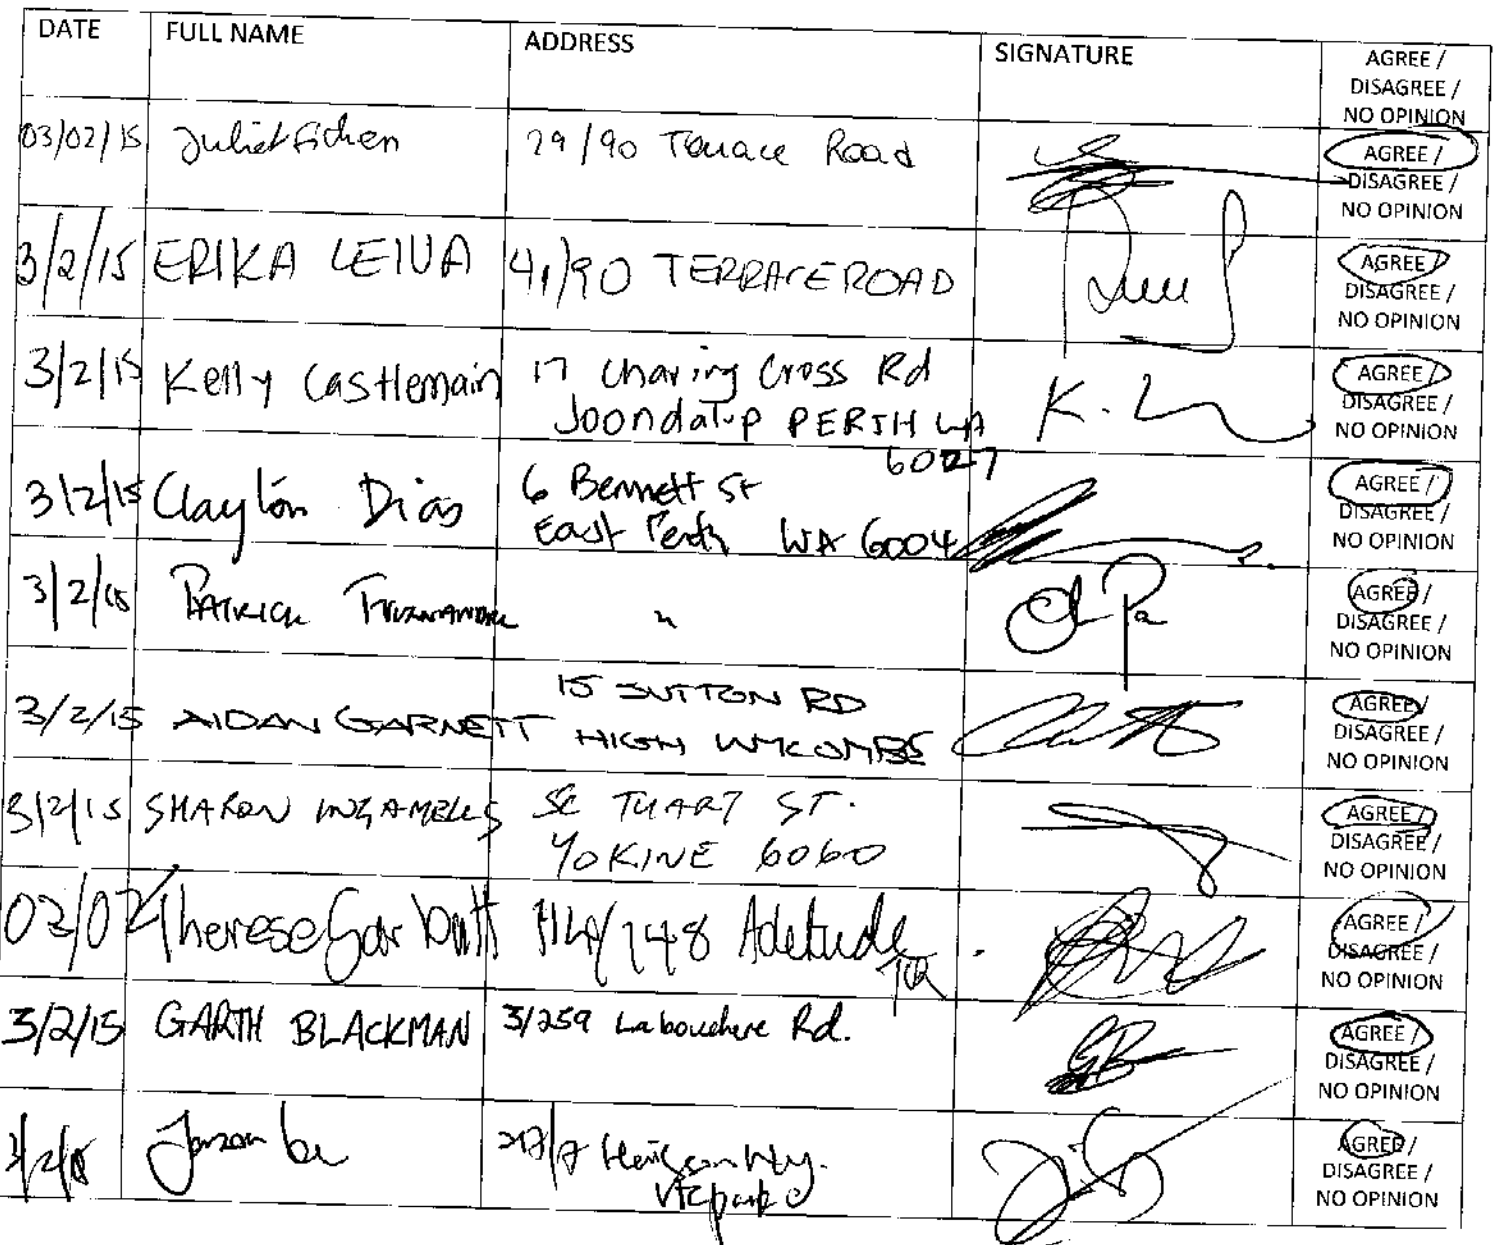 DATE FULL NAME ADDRESS SIGNATURE AGREE /
DISAGREE /
NO OPINION
03/02/15 Juliet 29/90 Terrace Road AGREE /
DISAGREE /
NO OPINION
3/2/15 ERIKA LEIVA 41/90 TERRACE ROAD AGREE /
DISAGREE /
NO OPINION
3/2/15 Kelly Castlemain 17 Charing Cross Rd AGREE /
Joondalup PERTH WA DISAGREE /
6027 NO OPINION
3/2/15 Clayton Dias 6 Bennett St AGREE /
East Perth WA 6004 DISAGREE /
NO OPINION
3/2/15 PATRICK " AGREE /
DISAGREE /
NO OPINION
3/2/15 AIDAN GARNETT 15 SUTTON RD AGREE /
HIGH WYCOMBE DISAGREE /
NO OPINION
3/2/15 SHARON INGAMELLS TUART ST. AGREE /
YOKINE 6060 DISAGREE /
NO OPINION
03/02/ Therese Garbutt 148 Adelaide AGREE /
Tce DISAGREE /
NO OPINION
3/2/15 GARTH BLACKMAN 3/259 Labouchere Rd. AGREE /
DISAGREE /
NO OPINION
AGREE /
Vic park DISAGREE /
NO OPINION